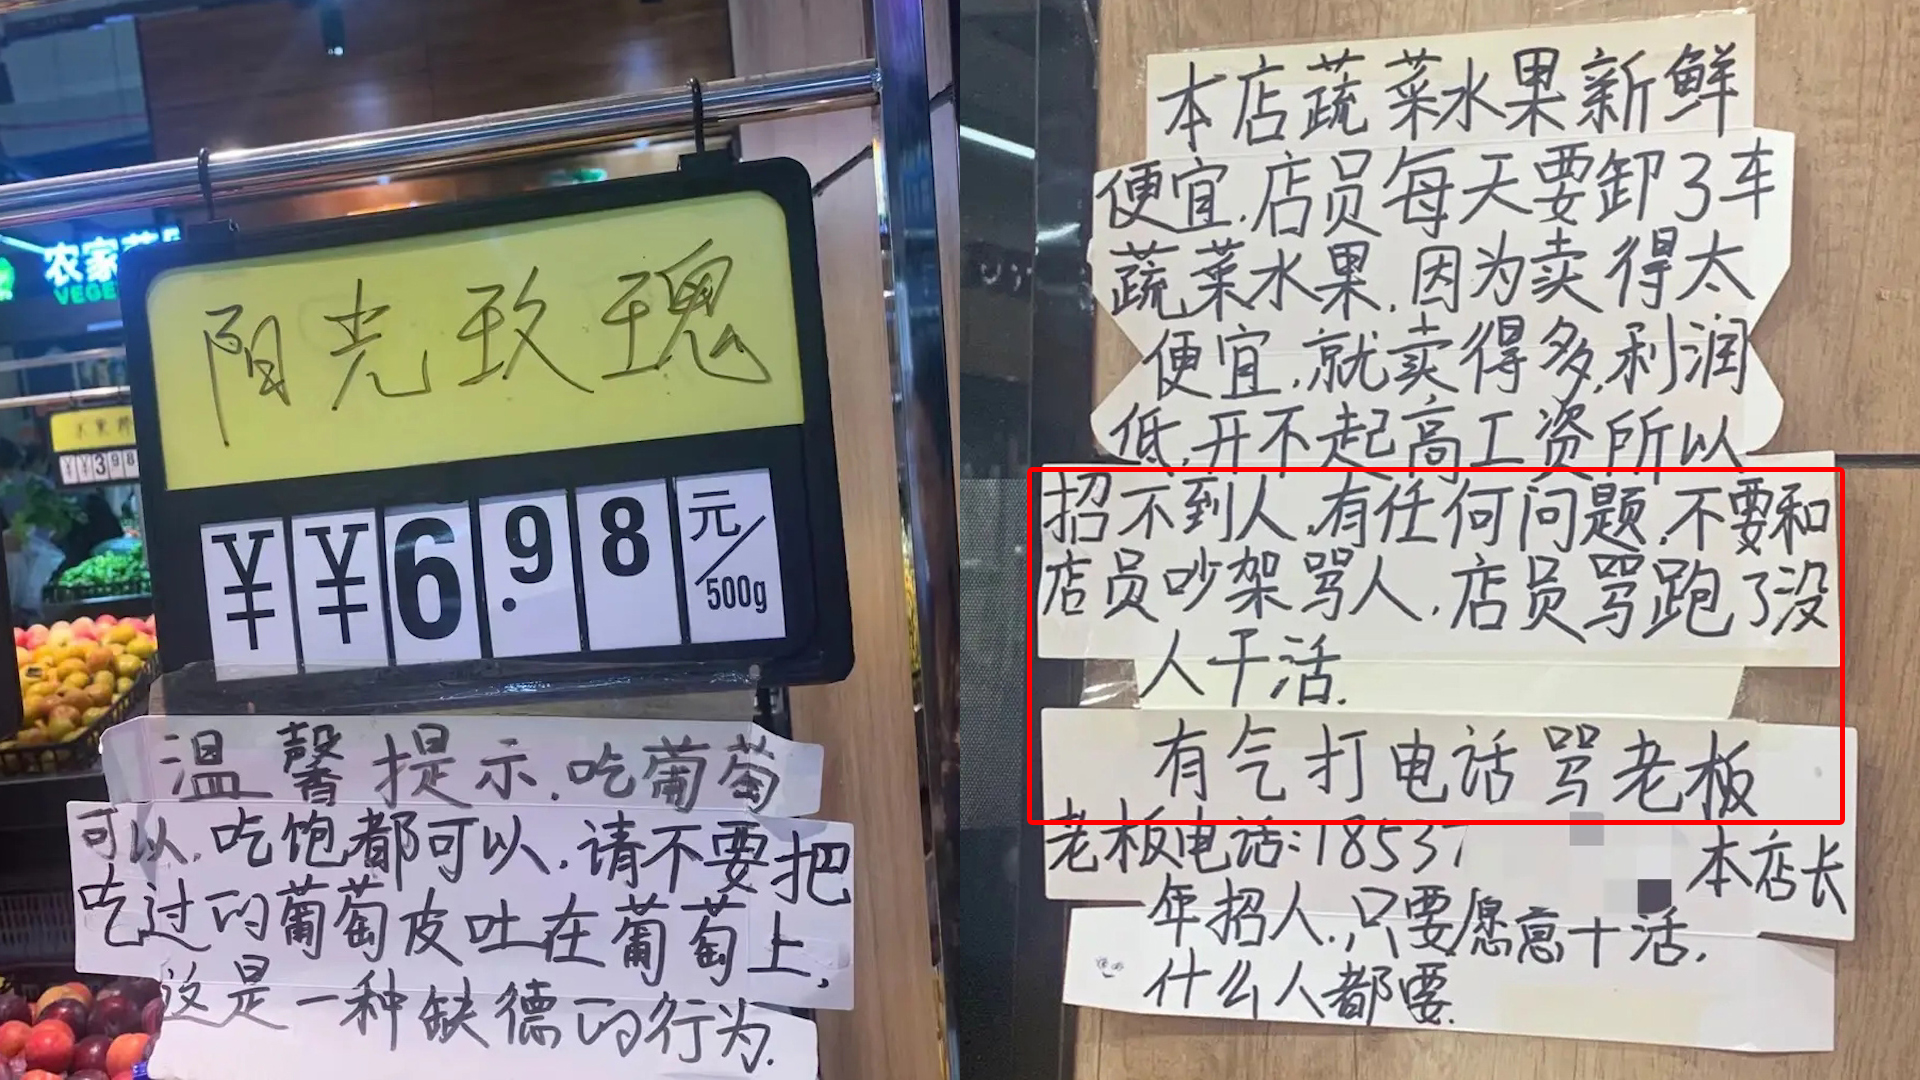 农家
VEGE
3.98
阳光玫瑰
¥¥6.98元/500g
温馨提示.吃葡萄
可以.吃饱都可以.请不要把
吃过的葡萄皮吐在葡萄上,
这是一种缺德的行为.
本店蔬菜水果新鲜
便宜.店员每天要卸3车
蔬菜水果.因为卖得太
便宜.就卖得多.利润
低.开不起高工资所以
招不到人.有任何问题.不要和
店员吵架骂人.店员骂跑了没
人干活.
有气打电话骂老板
老板电话:18537
本店长
年招人.只要愿意干活.
什么人都要.